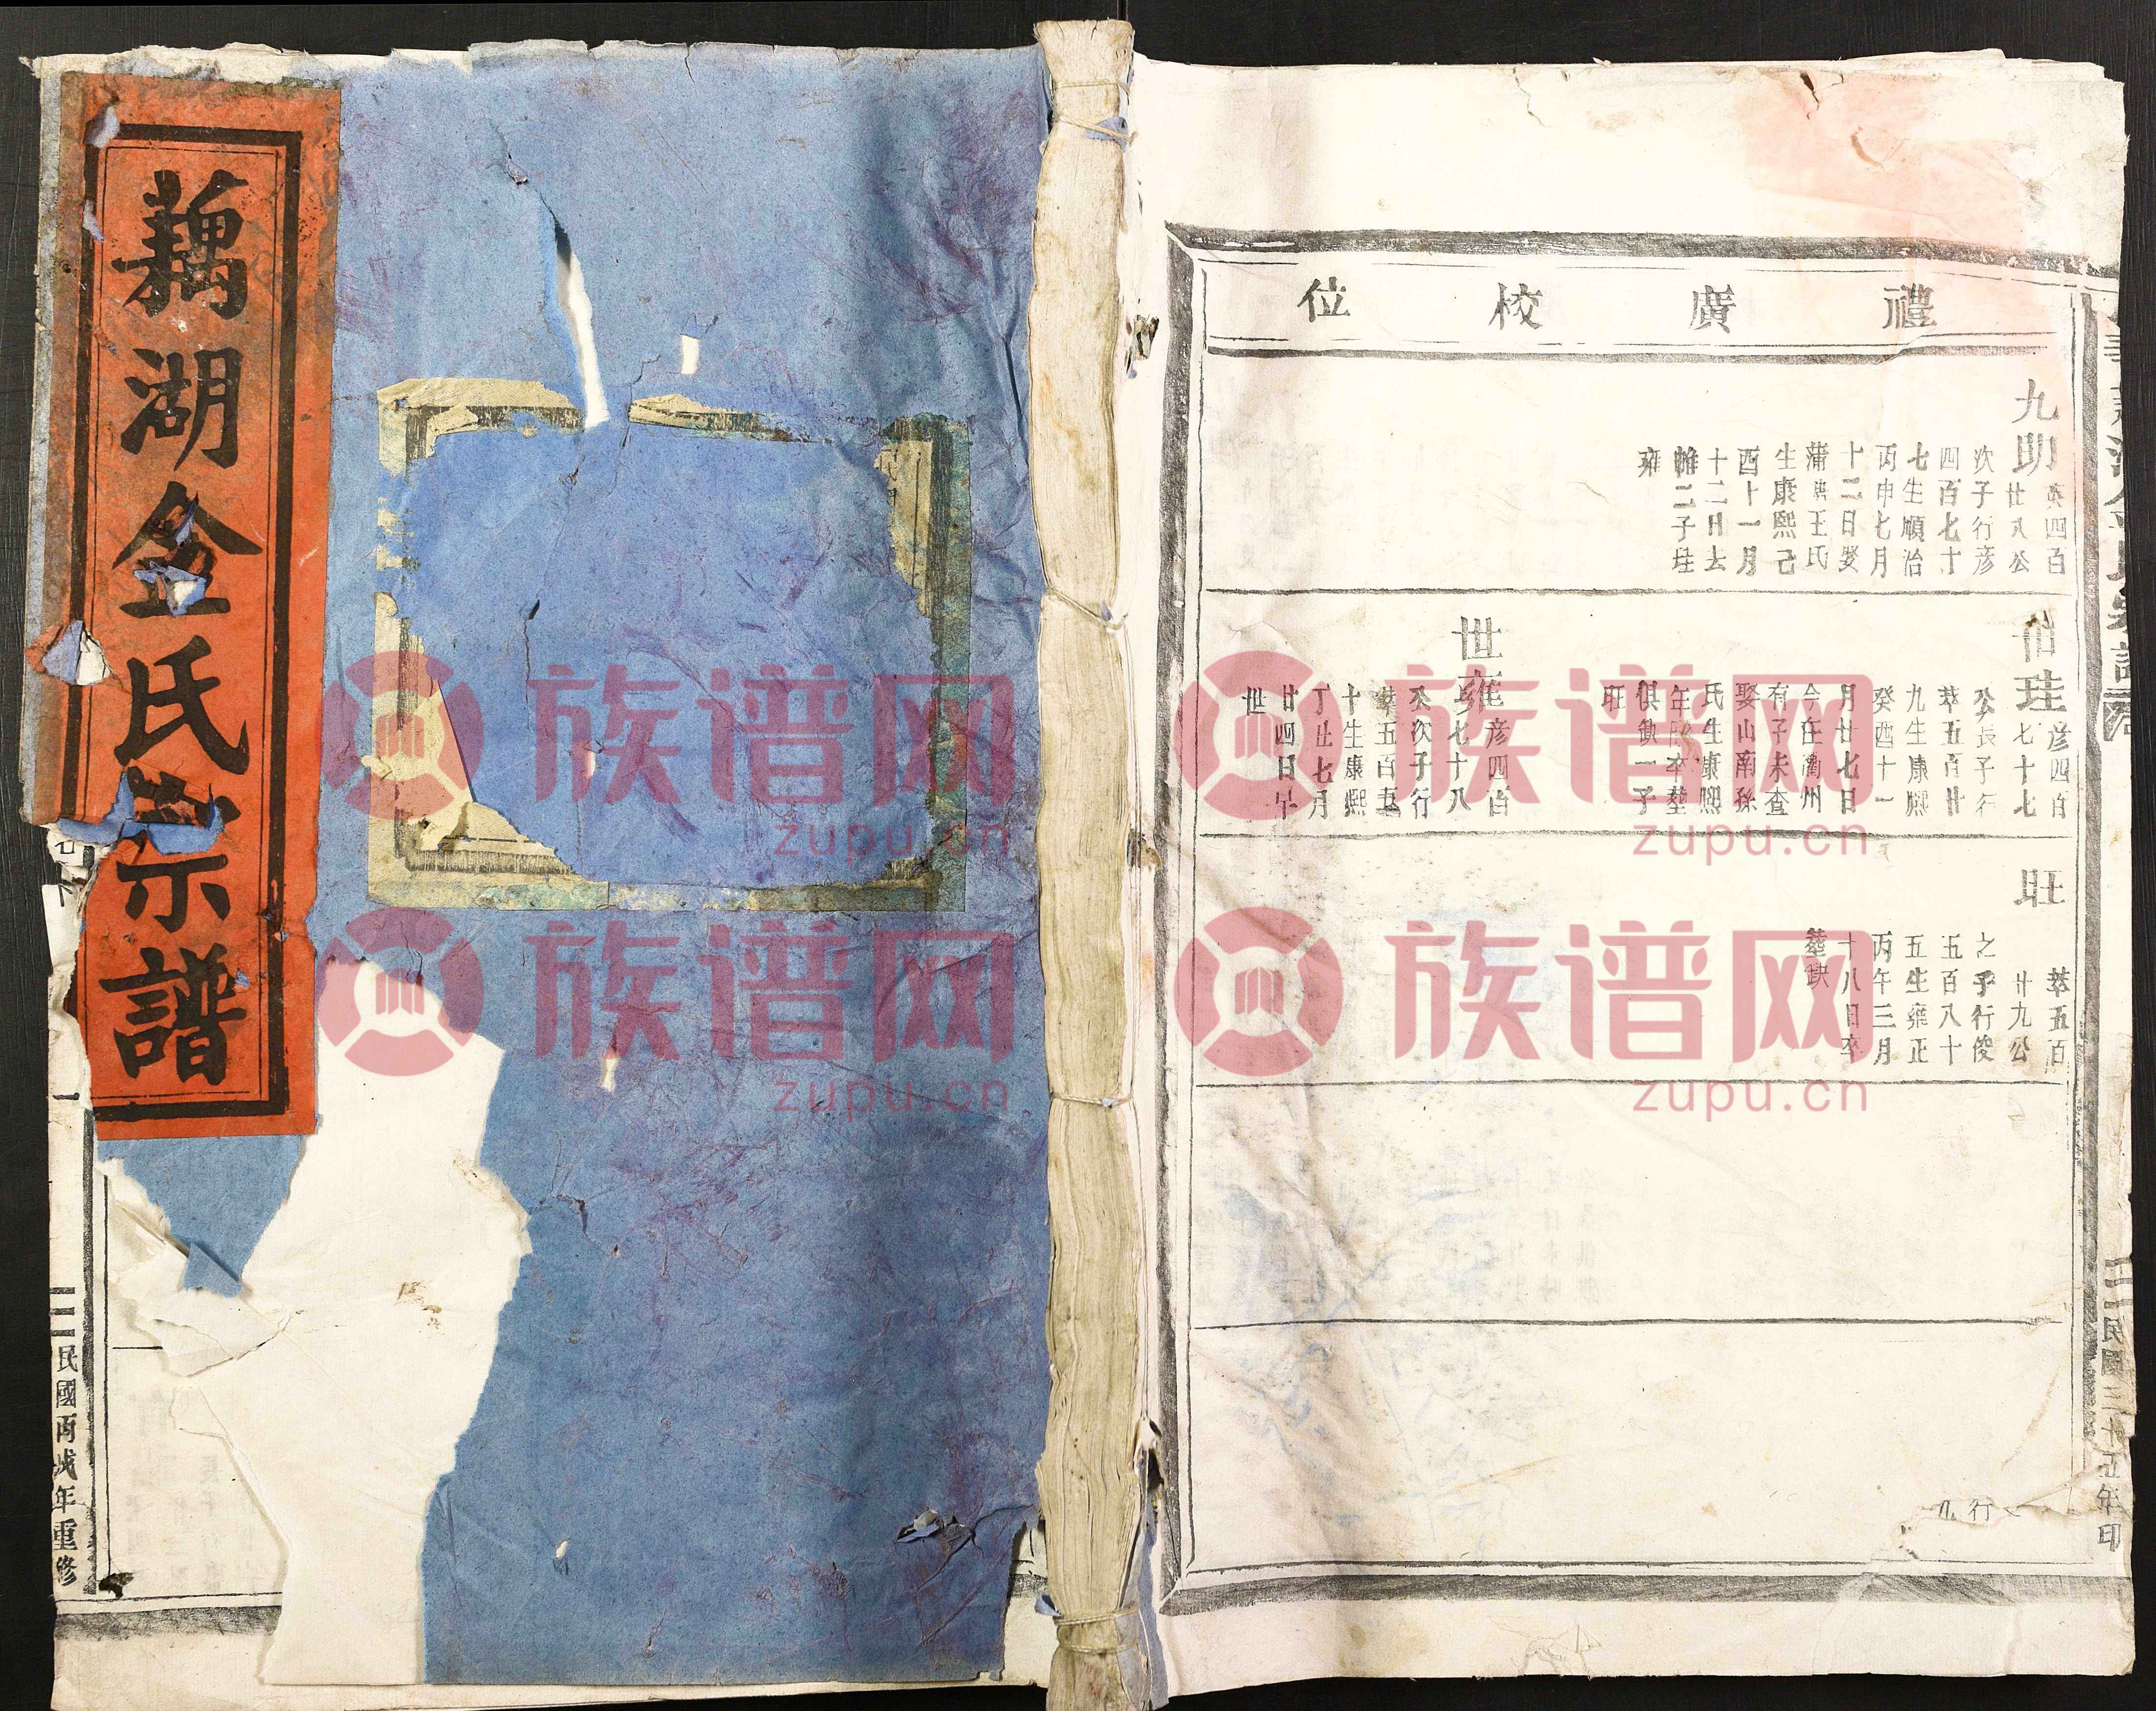 藕湖金氏宗譜
民國丙戌年重修
禮廣校位
九助
四百
廿八公
次子行彦
四百七十
七生順治
丙申七月
十二日娶
蒲塘王氏
生康熙己
酉十一月
十二日去
帷二子珪
雍
珪
彦四百
七十七
公長子行
萃五百廿
九生康熙
癸酉十一
月廿七日
今在衢州
有子未查
娶山南孫
氏生康熙
年 卒塟
俱缺一子
旺
世雍
彦四百
七十八
公次子行
萃五百
十生康熙
丁丑七月
廿四日卒
世
旺
萃五百
廿九公
之子行俊
五百八十
五生雍正
丙午三月
十八日卒
塟缺
行
民國三十五年印
族谱网
zupu.cn
族谱网
zupu.cn
族谱网
zupu.cn
族谱网
zupu.cn